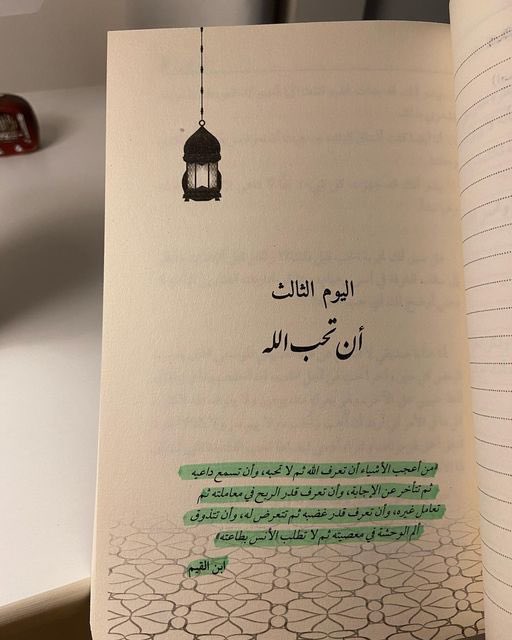 اليوم الثالث
أن تحب الله
«من أعجب الأشياء أن تعرف الله ثم لا تحبه، وأن تسمع داعيه
ثم تتأخر عن الإجابة، وأن تعرف قدر الربح في معاملته ثم
تعامل غيره، وأن تعرف قدر غضبه ثم تتعرض له، وأن تتذوق
ألم الوحشة في معصيته ثم لا تطلب الأنس بطاعته»
ابن القيم